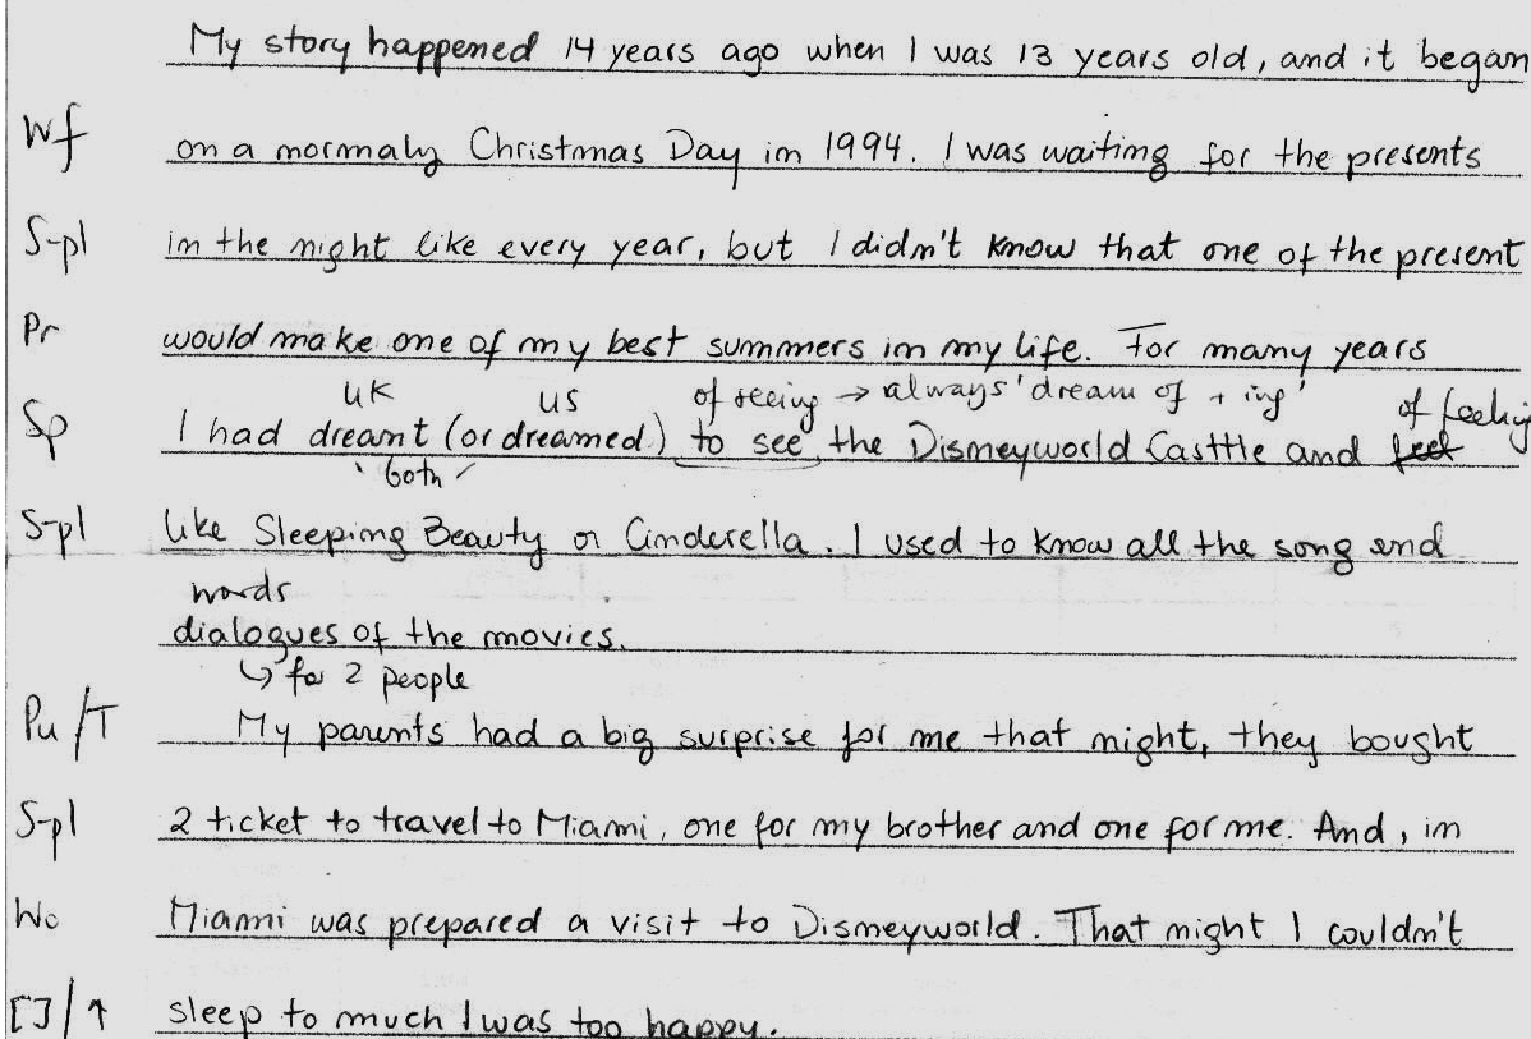 My story happened 14 years ago when I was 13 years old, and it began
Wf on a normaly Christmas Day in 1994. I was waiting for the presents
S-pl in the night like every year, but I didn't know that one of the present
Pr would make one of my best summers in my life. For many years
UK US of seeing → always 'dream of + ing' of feeling
Sp I had dreamt (or dreamed) to see the Disneyworld Casttle and feel
both
S-pl like Sleeping Beauty or Cinderella. I used to know all the song and
words
dialogues of the movies.
↳ for 2 people
Pu/T My parents had a big surprise for me that night, they bought
S-pl 2 ticket to travel to Miami, one for my brother and one for me. And, in
Wo Miami was prepared a visit to Disneyworld. That night I couldn't
[]/↑ sleep to much I was too happy.